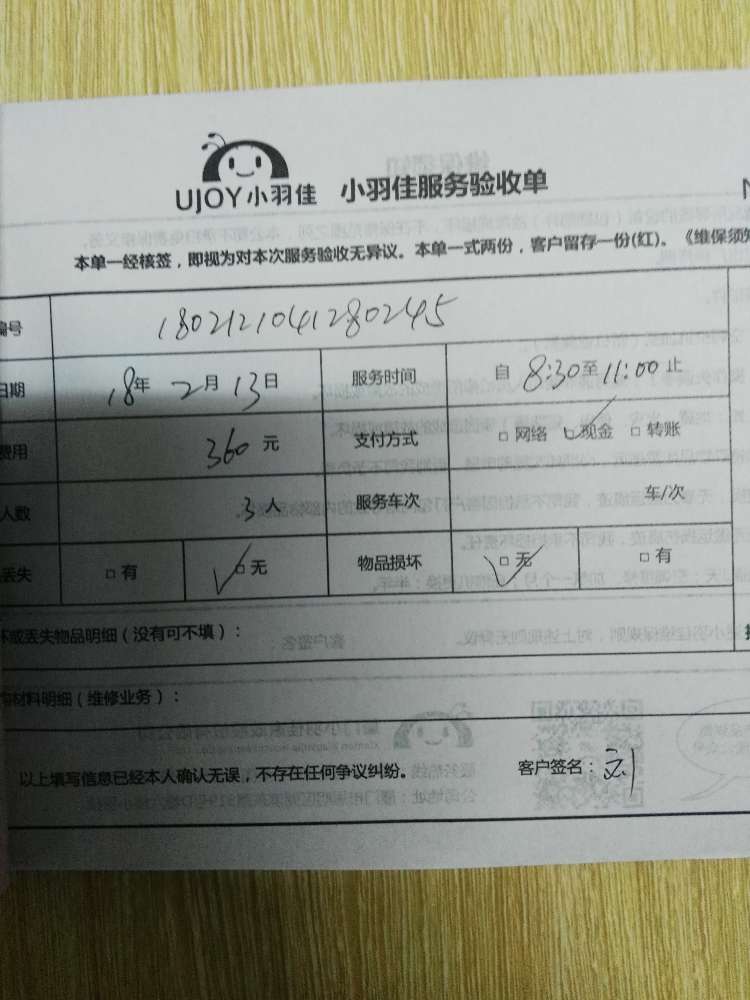 UJOY小羽佳 小羽佳服务验收单
本单一经核签，即视为对本次服务验收无异议。本单一式两份，客户留存一份(红)。《维保须知
编号 1802121041280245
日期 18年 2月 13日 服务时间 自 8:30至11:00止
费用 360元 支付方式 □网络 ☑现金 □转账
人数 3人 服务车次 车/次
丢失 □有 ☑无 物品损坏 ☑无 □有
坏或丢失物品明细（没有可不填）：
材料明细（维修业务）：
以上填写信息已经本人确认无误，不存在任何争议纠纷。 客户签名：刘